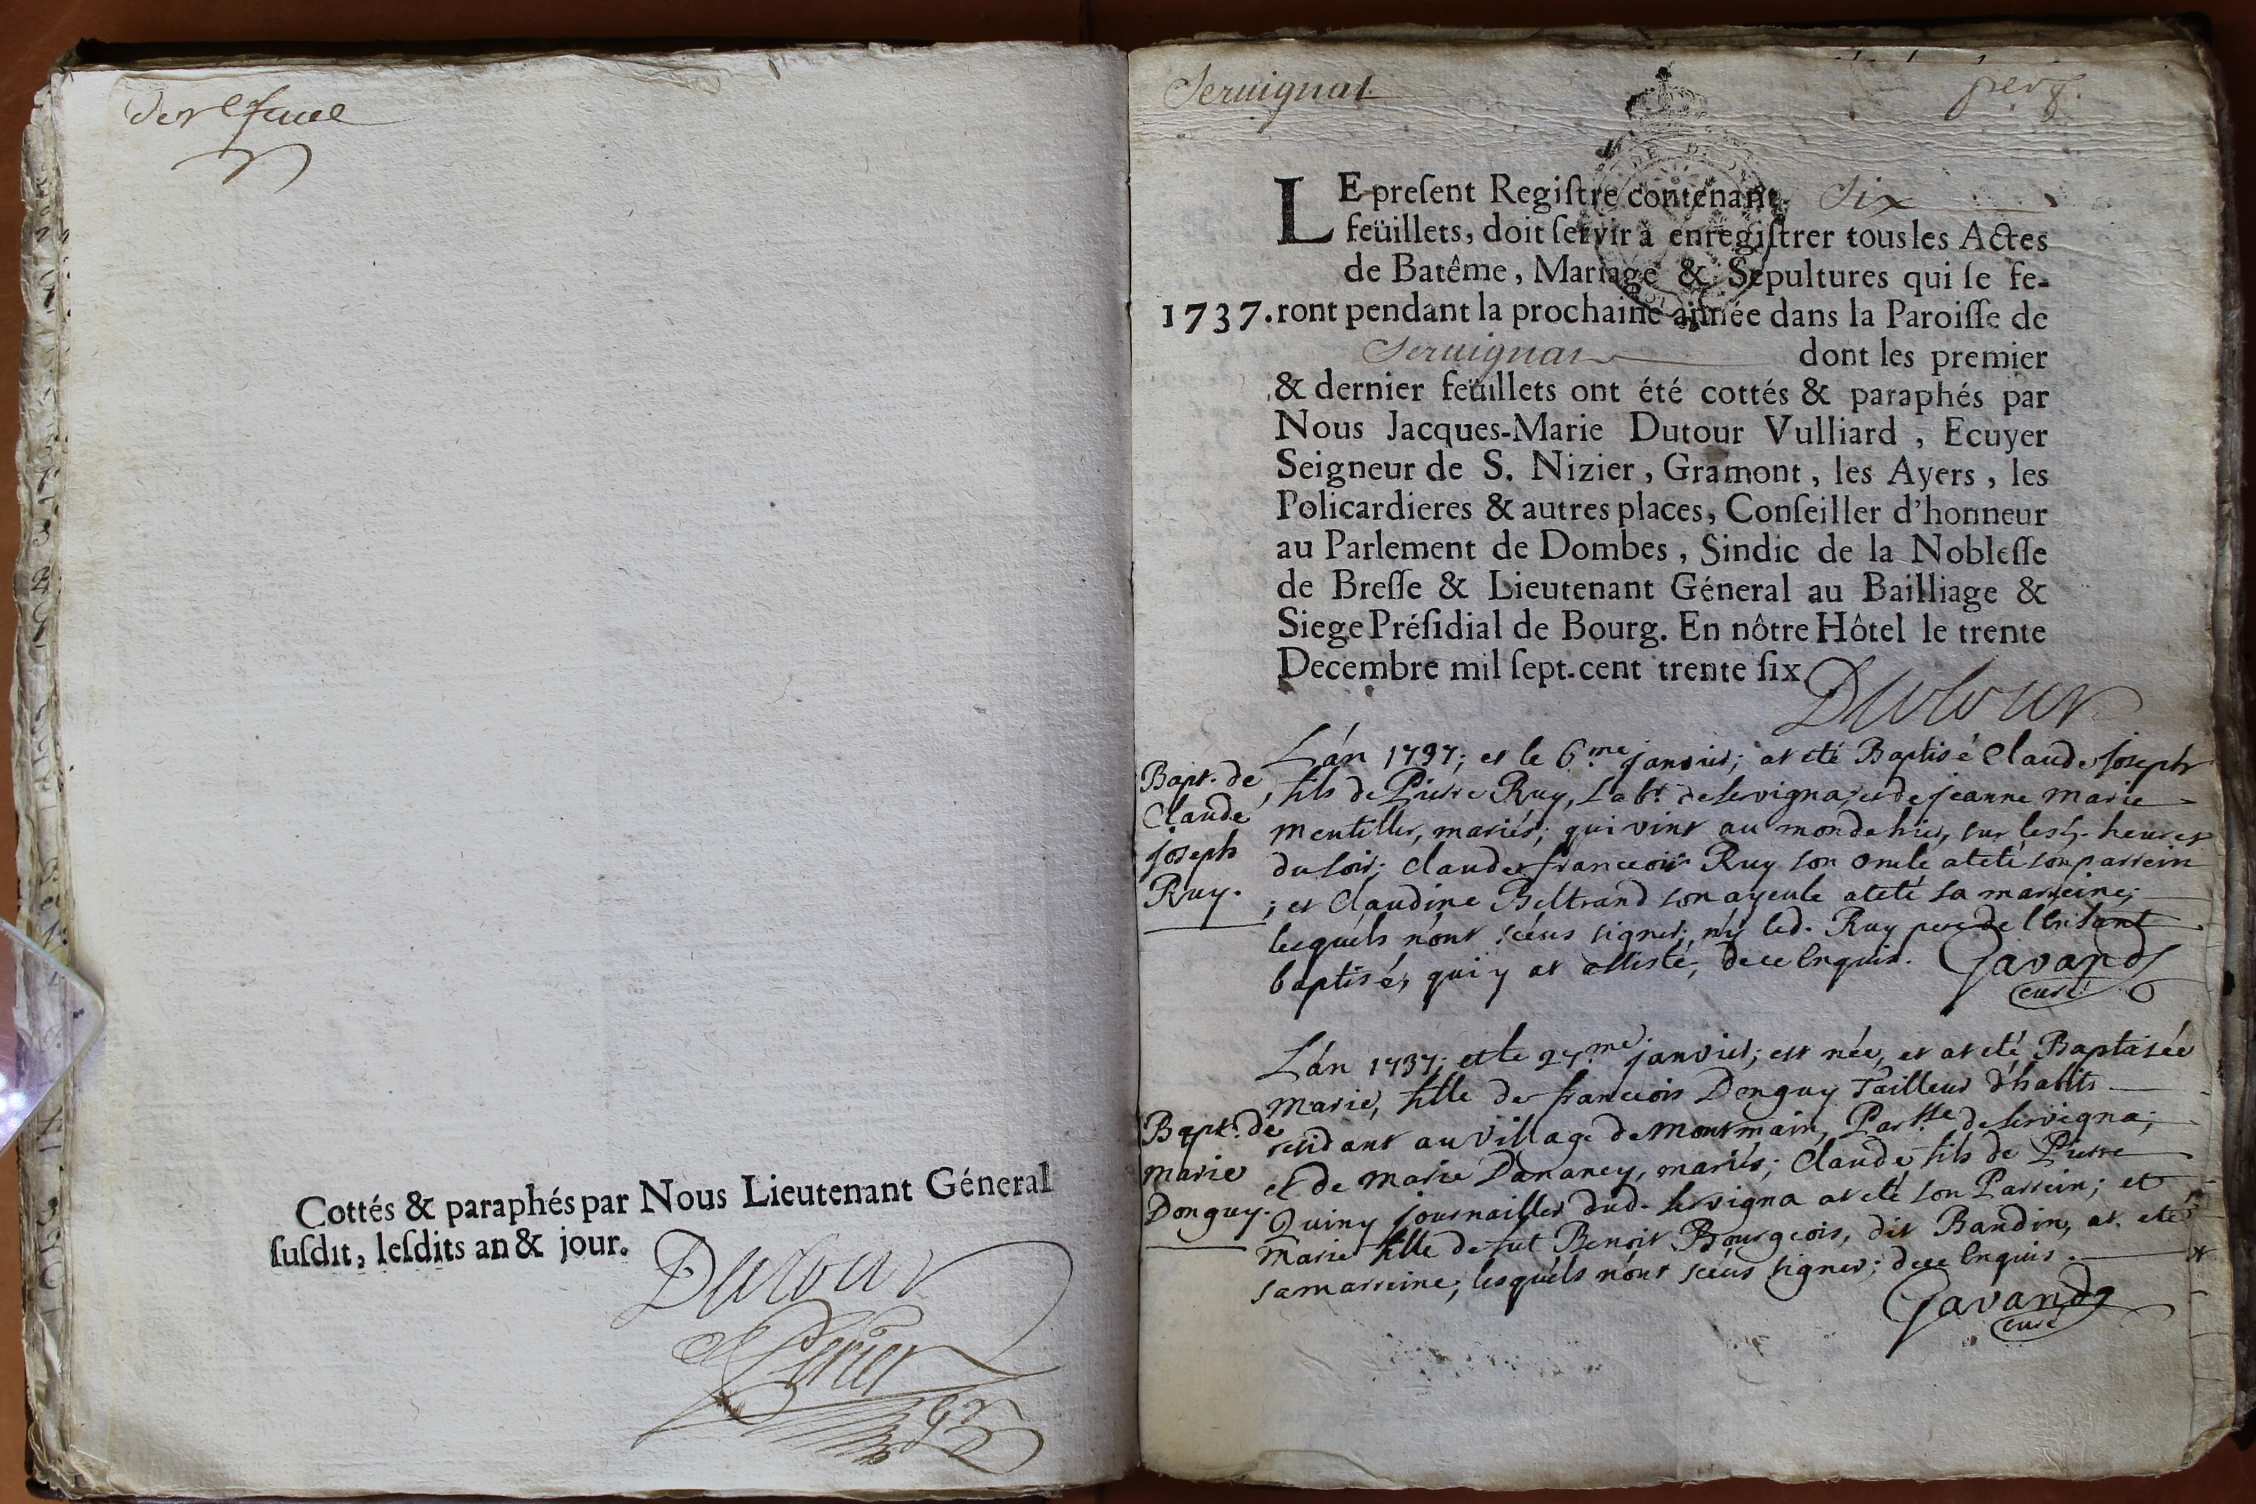 der feuel
Cottés & paraphés par Nous Lieutenant Géneral
ſuſdit, leſdits an & jour.
Dutour
Perier
Seruignat
LE preſent Regiſtre contenant Six
feüillets, doit ſervir à enregiſtrer tous les Actes
de Batême, Mariage & Sepultures qui ſe fe-
1737. ront pendant la prochaine année dans la Paroiſſe de
Seruignat dont les premier
& dernier feüillets ont été cottés & paraphés par
Nous Jacques-Marie Dutour Vulliard, Ecuyer
Seigneur de S. Nizier, Gramont, les Ayers, les
Policardieres & autres places, Conſeiller d'honneur
au Parlement de Dombes, Sindic de la Nobleſſe
de Breſſe & Lieutenant Géneral au Bailliage &
Siege Préſidial de Bourg. En nôtre Hôtel le trente
Decembre mil ſept-cent trente ſix.
Dutour
Bapt. de
Claude
joseph
Ruy.
L'án 1737; et le 6.me janvier; at eté Baptisé Claude joseph
, fils de Pierre Ruy, Labr. de servigna, et de jeanne marie
mentiller, mariés; qui vint au monde hier, sur les 5. heures
du soir; Claude franceois Ruy son oncle at eté son parrein
; et Claudine Beltrand son ayeule at eté sa marreine;
lesquels n'ont sceus signer; n'y led. Ruy pere de l'Enfant
baptisé, qui y at assisté; de ce Enquis. Gavand
curé
Bapt. de
marie
Donguy.
L'án 1737; et le 27.me janvier; est née, et at eté Baptisée
marie, fille de franceois Donguy Tailleur d'habits
residant au Village de montmain, Parsse de servigna;
et de marie Dananey, mariés; Claude fils de Pierre
Quiny journaillier dud. servigna at eté son Parrein; et
marie fille de fut Benoit Bourgeois, dit Bandin, at eté
sa marreine; lesquels n'ont sceus signer; de ce Enquis.
Gavand
curé